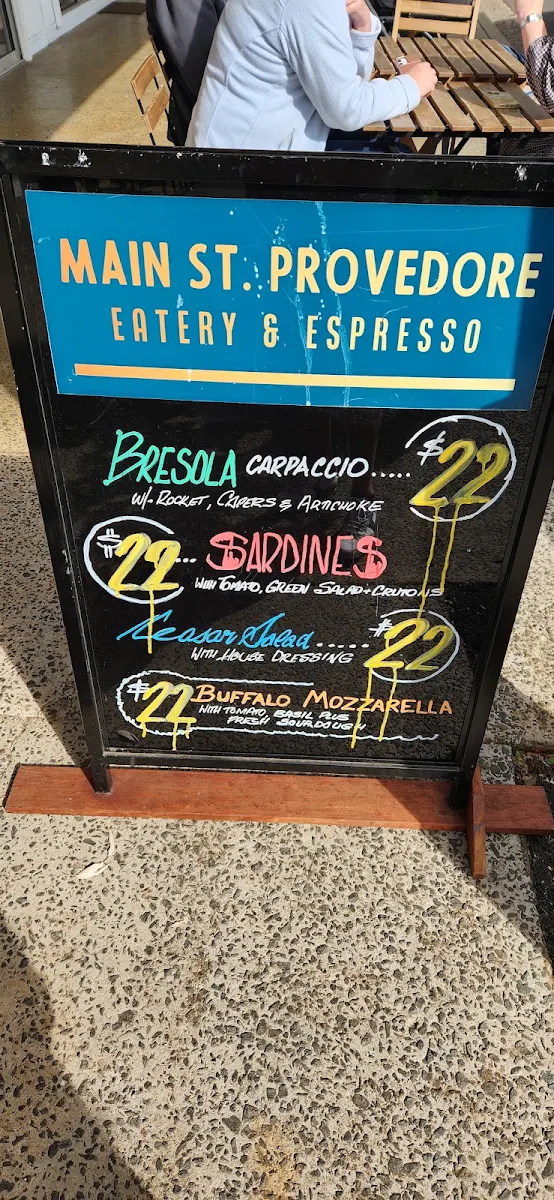 MAIN ST. PROVEDORE
EATERY & ESPRESSO
BRESOLA CARPACCIO..... $22
W/. ROCKET, CAPERS & ARTICHOKE
$22... SARDINES
WITH TOMATO, GREEN SALAD + CRUTONS
Ceasar Salad ..... $22
WITH HOUSE DRESSING
$22 BUFFALO MOZZARELLA
WITH TOMATO BASIL PLUS
FRESH SOURDOUGH